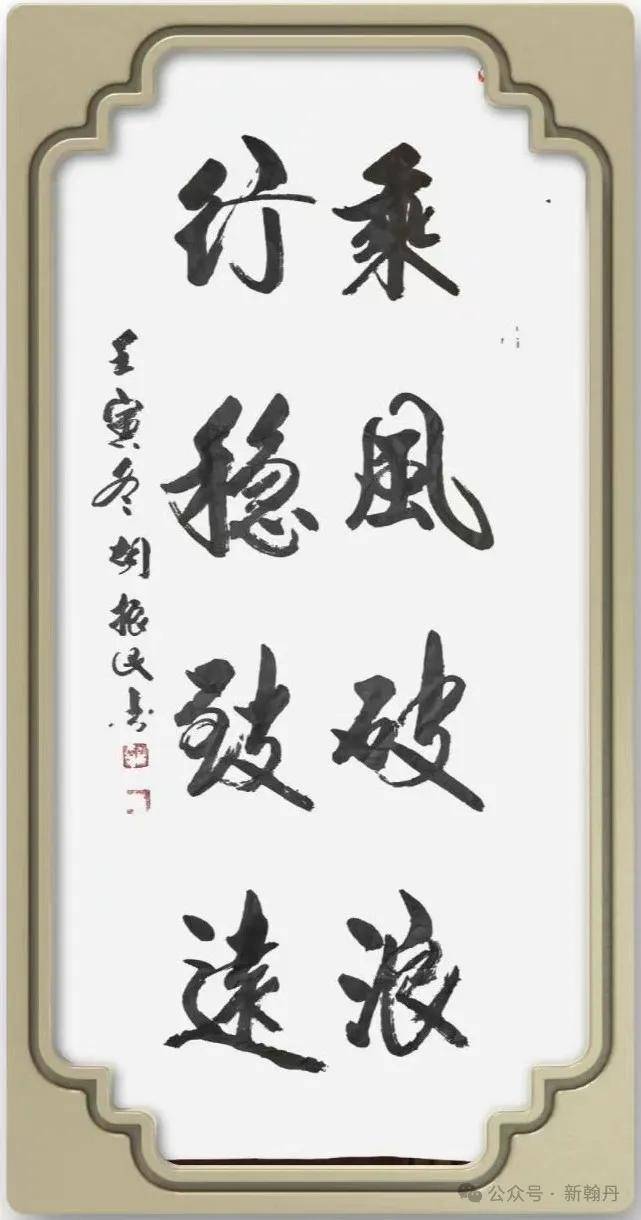 乘風破浪
行稳致遠
壬寅冬胡振民书
公众号·新翰丹